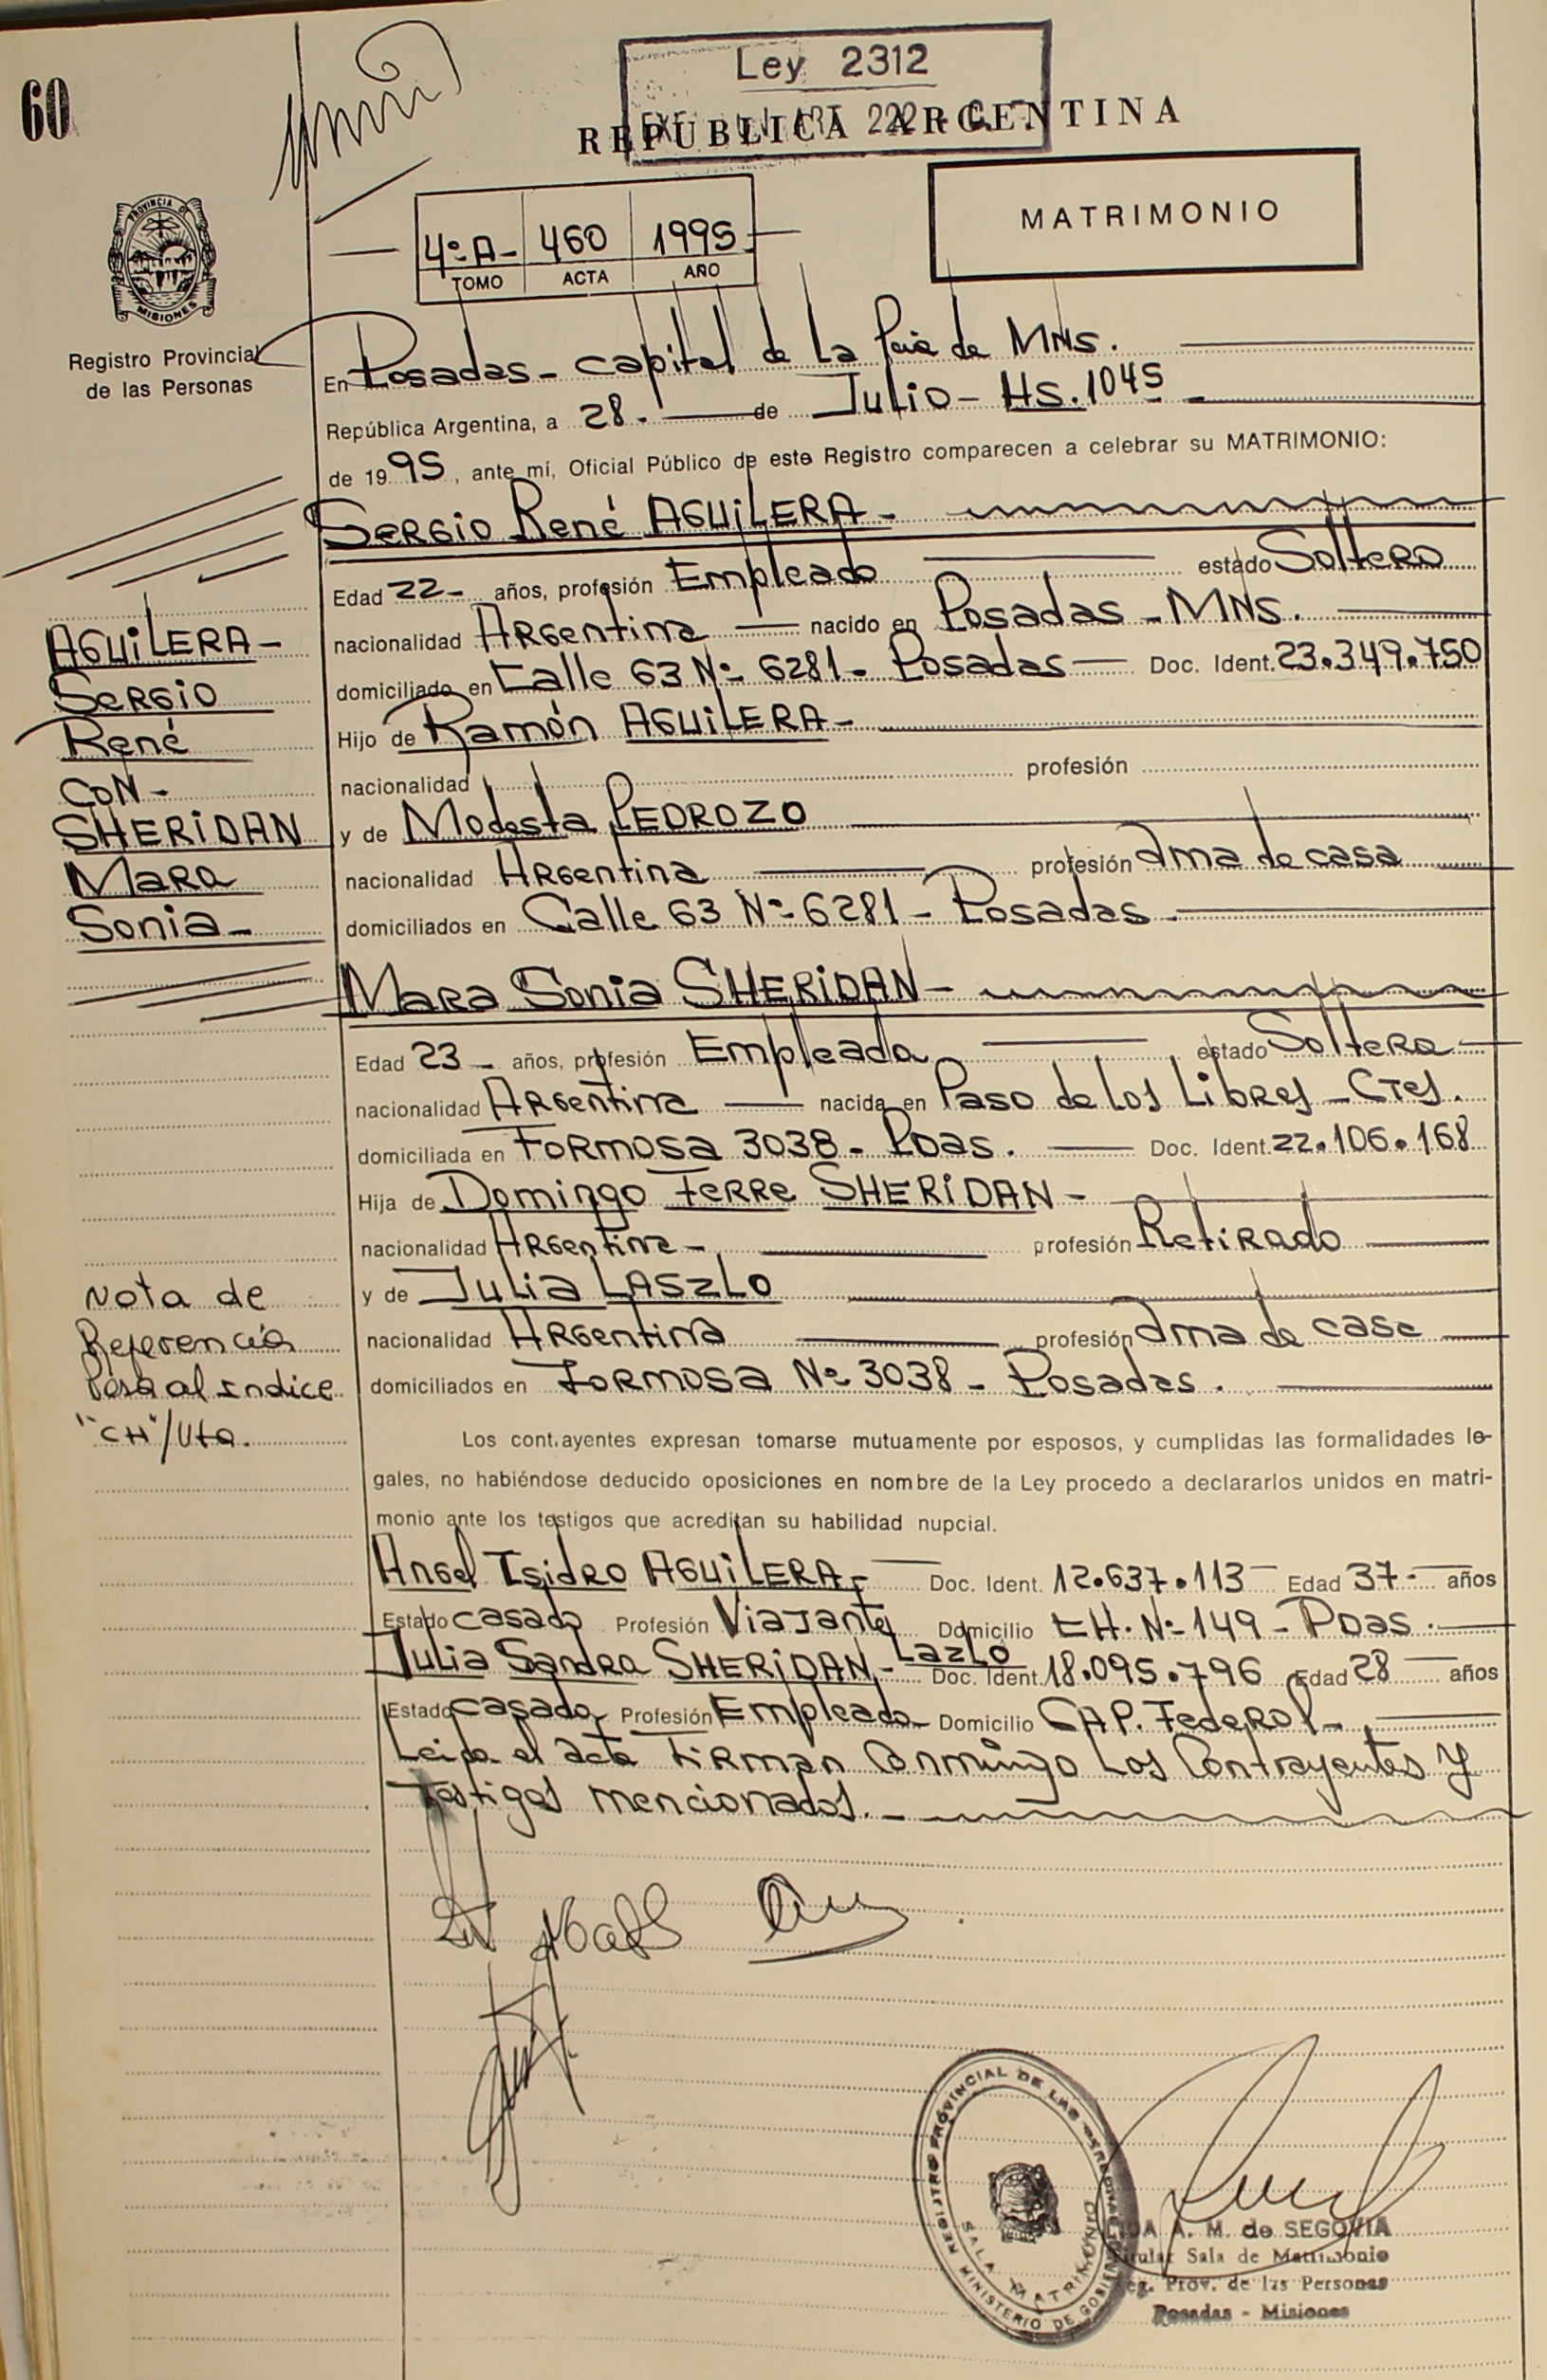 60
Ley 2312
REPUBLICA ARGENTINA
MATRIMONIO
4º A- 460 1995
TOMO ACTA AÑO
PROVINCIA DE
MISIONES
Registro Provincial
de las Personas
En Posadas - capital de La Pcia de MNS.
República Argentina, a 28. de Julio - Hs. 1045
de 1995, ante mí, Oficial Público de este Registro comparecen a celebrar su MATRIMONIO:
Sergio René AGUILERA -
Edad 22 - años, profesión Empleado estado Soltero
nacionalidad Argentina nacido en Posadas - MNS.
domiciliado en Calle 63 Nº 6281 - Posadas Doc. Ident. 23.349.750
Hijo de Ramón AGUILERA -
nacionalidad profesión
y de Modesta PEDROZO
nacionalidad Argentina profesión Ama de casa
domiciliados en Calle 63 Nº 6281 - Posadas
AGUILERA -
Sergio
René
CON -
SHERIDAN
Mara
Sonia -
Mara Sonia SHERIDAN -
Edad 23 - años, profesión Empleada estado Soltera
nacionalidad Argentina nacida en Paso de los Libres - Ctes.
domiciliada en Formosa 3038 - Pdas. Doc. Ident. 22.106.168
Hija de Domingo Ferre SHERIDAN -
nacionalidad Argentina - profesión Retirado
y de Julia LASZLO
nacionalidad Argentina profesión Ama de casa
domiciliados en Formosa Nº 3038 - Posadas.
Nota de
Referencia
Pasa al Indice
"CH"/Vta.
Los contrayentes expresan tomarse mutuamente por esposos, y cumplidas las formalidades le-
gales, no habiéndose deducido oposiciones en nombre de la Ley procedo a declararlos unidos en matri-
monio ante los testigos que acreditan su habilidad nupcial.
Angel Isidro AGUILERA - Doc. Ident. 12.637.113 Edad 37 - años
Estado casado Profesión Viajante Domicilio CH. Nº 149 - Pdas.
Julia Sandra SHERIDAN - Lazló Doc. Ident. 18.095.796 Edad 28 años
Estado casada Profesión Empleada Domicilio CAP. Federal -
Leida el acta firman conmingo los Contrayentes y
testigos mencionados. -
REGISTRO PROVINCIAL DE LAS PERSONAS
SALA MATRIMONIO
MINISTERIO DE GOBIERNO
LIDA A. M. de SEGOVIA
Titular Sala de Matrimonio
Reg. Prov. de las Personas
Posadas - Misiones